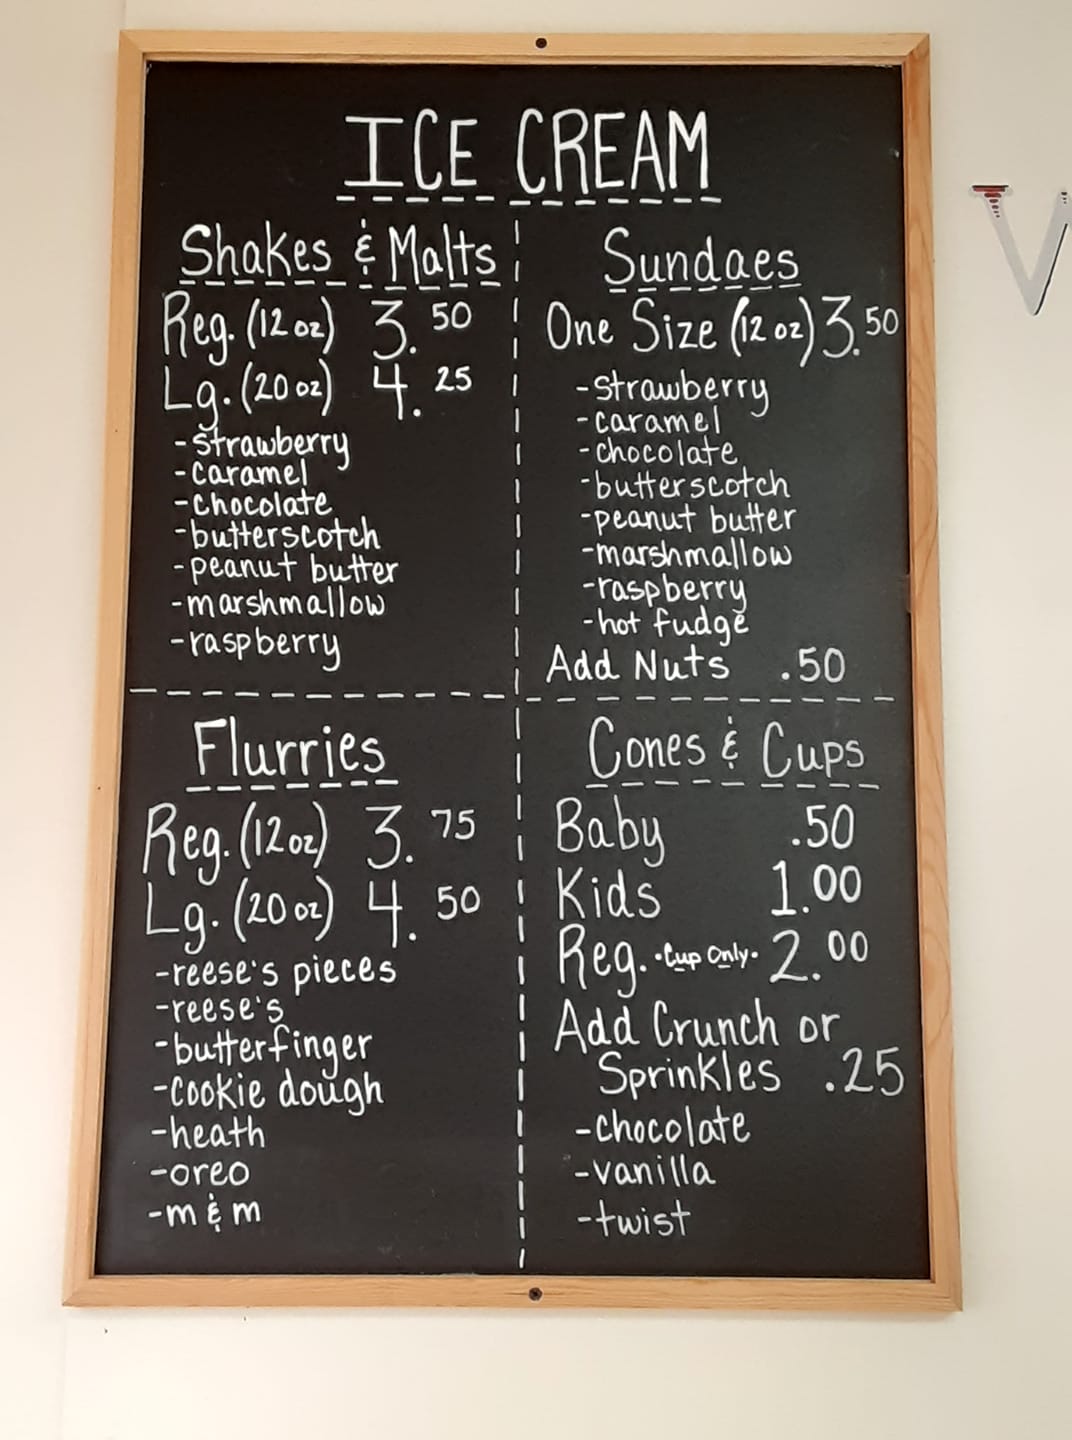 ICE CREAM
Shakes & Malts
Reg. (12 oz) 3.50
Lg. (20 oz) 4.25
-strawberry
-caramel
-chocolate
-butterscotch
-peanut butter
-marshmallow
-raspberry
Sundaes
One Size (12 oz) 3.50
-strawberry
-caramel
-chocolate
-butterscotch
-peanut butter
-marshmallow
-raspberry
-hot fudge
Add Nuts .50
Flurries
Reg. (12 oz) 3.75
Lg. (20 oz) 4.50
-reese's pieces
-reese's
-butterfinger
-cookie dough
-heath
-oreo
-m & m
Cones & Cups
Baby .50
Kids 1.00
Reg. •Cup Only• 2.00
Add Crunch or
Sprinkles .25
-chocolate
-vanilla
-twist
V